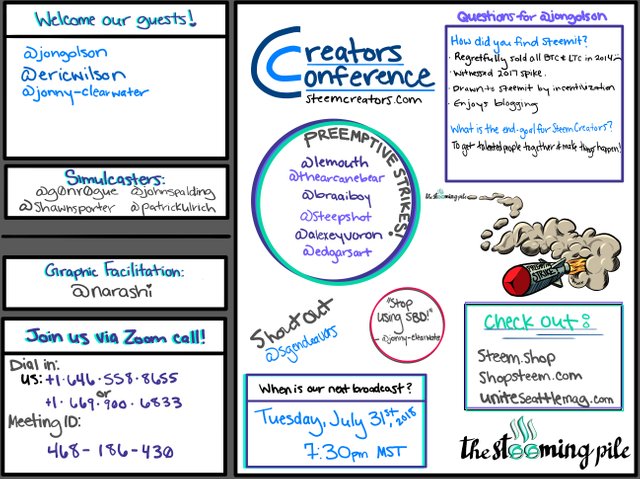 Welcome our guests!
@jongolson
@ericwilson
@jonny-clearwater
Simulcasters:
@g0nr0gue @johnspalding
@shawnsporter @patrickulrich
Graphic Facilitation:
@narashi
Join us via Zoom call!
Dial in:
US: +1·646·558·8655
or
+1·669·900·6833
Meeting ID:
468-186-430
Creators
Conference
steemcreators.com
PREEMPTIVE STRIKES!
@lemouth
@thearcanebear
@braaiboy
@steepshot
@alexeyvoron
@edgarsart
Shout out
@sgendeavors
"Stop
using SBD!"
-@jonny-clearwater
When is our next broadcast?
Tuesday, July 31st, 2018
7:30pm MST
Questions for @jongolson
How did you find steemit?
• Regretfully sold all BTC & LTC in 2014
• Witnessed 2017 spike.
• Drawn to steemit by incentivization
• Enjoys blogging
What is the end-goal for Steem.Creators?
To get talented people together & make things happen!
the steeming pile
PREEMPTIVE
STRIKE
Check out:
Steem.shop
Shopsteem.com
uniteseattlemag.com
the steeming pile